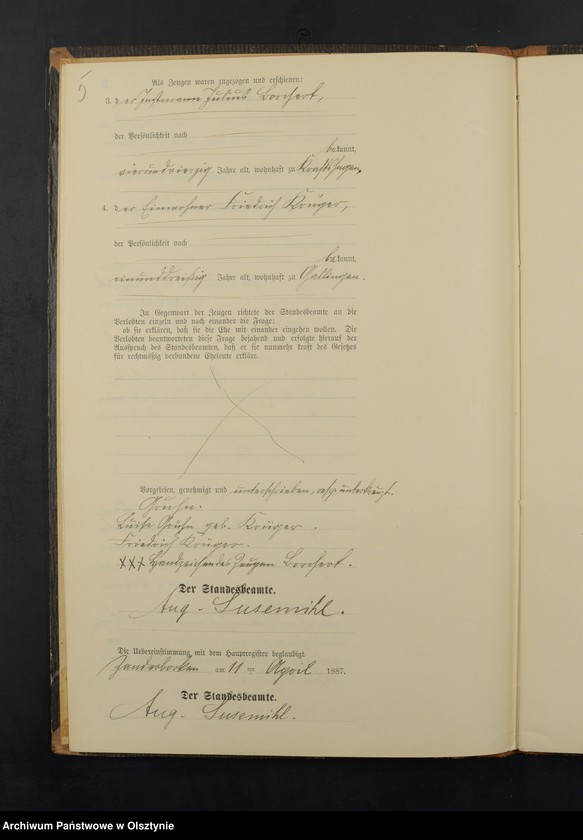 5
Als Zeugen waren zugezogen und erschienen:
3. der Instmann Julius Borchert,
der Persönlichkeit nach
bekannt,
vierundvierzig Jahre alt, wohnhaft zu Kraftshagen,
4. der Einwohner Friedrich Krüger,
der Persönlichkeit nach
bekannt,
einunddreißig Jahre alt, wohnhaft zu Gallingen.
In Gegenwart der Zeugen richtete der Standesbeamte an die
Verlobten einzeln und nach einander die Frage:
ob sie erklären, daß sie die Ehe mit einander eingehen wollen. Die
Verlobten beantworteten diese Frage bejahend und erfolgte hierauf der
Ausspruch des Standesbeamten, daß er sie nunmehr kraft des Gesetzes
für rechtmäßig verbundene Eheleute erkläre.
Vorgelesen, genehmigt und unterschrieben, resp. unterkreuzt.
Gruhn.
Luise Gruhn geb. Krüger.
Friedrich Krüger.
XXX Handzeichen des Zeugen Borchert.
Der Standesbeamte.
Aug. Susemihl.
Die Uebereinstimmung mit dem Hauptregister beglaubigt.
am 11 ten April 1887.
Der Standesbeamte.
Aug. Susemihl.
Archiwum Państwowe w Olsztynie